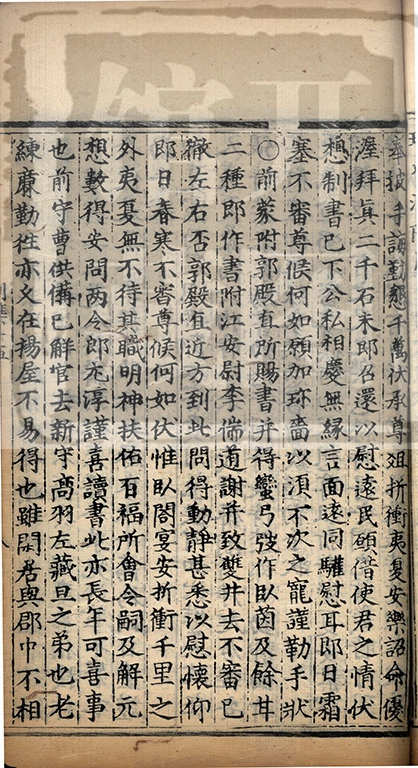 披手誨勤懇千萬伏承尊俎折衝夷夏安樂詔命優
渥拜真二千石未即召還以慰遠民願借使君之情伏
想制書已下公私相慶無緣言面遠同驩慰耳即日霜
塞不審尊候何如願加珍嗇以須不次之寵謹勒手狀
〇前蒙附郭殿直所賜書并得蠻弓弢作臥茵及餘甘
二種即作書附江安尉李偘道謝并致雙井去不審已
徹左右否郭殿直近方到此問得動靜甚悉以慰懷仰
即日春寒不審尊候何如伏惟臥閤宴安折衝千里之
外夷夏無不待其職明神扶佑百福所會令嗣及解元
想數得安問两令郎尤淳謹喜讀書此亦長年可喜事
也前守曹供備已解官去新守高羽左藏旦之弟也老
練廉勤往亦久在場屋不易得也雖閑居與郡中不相